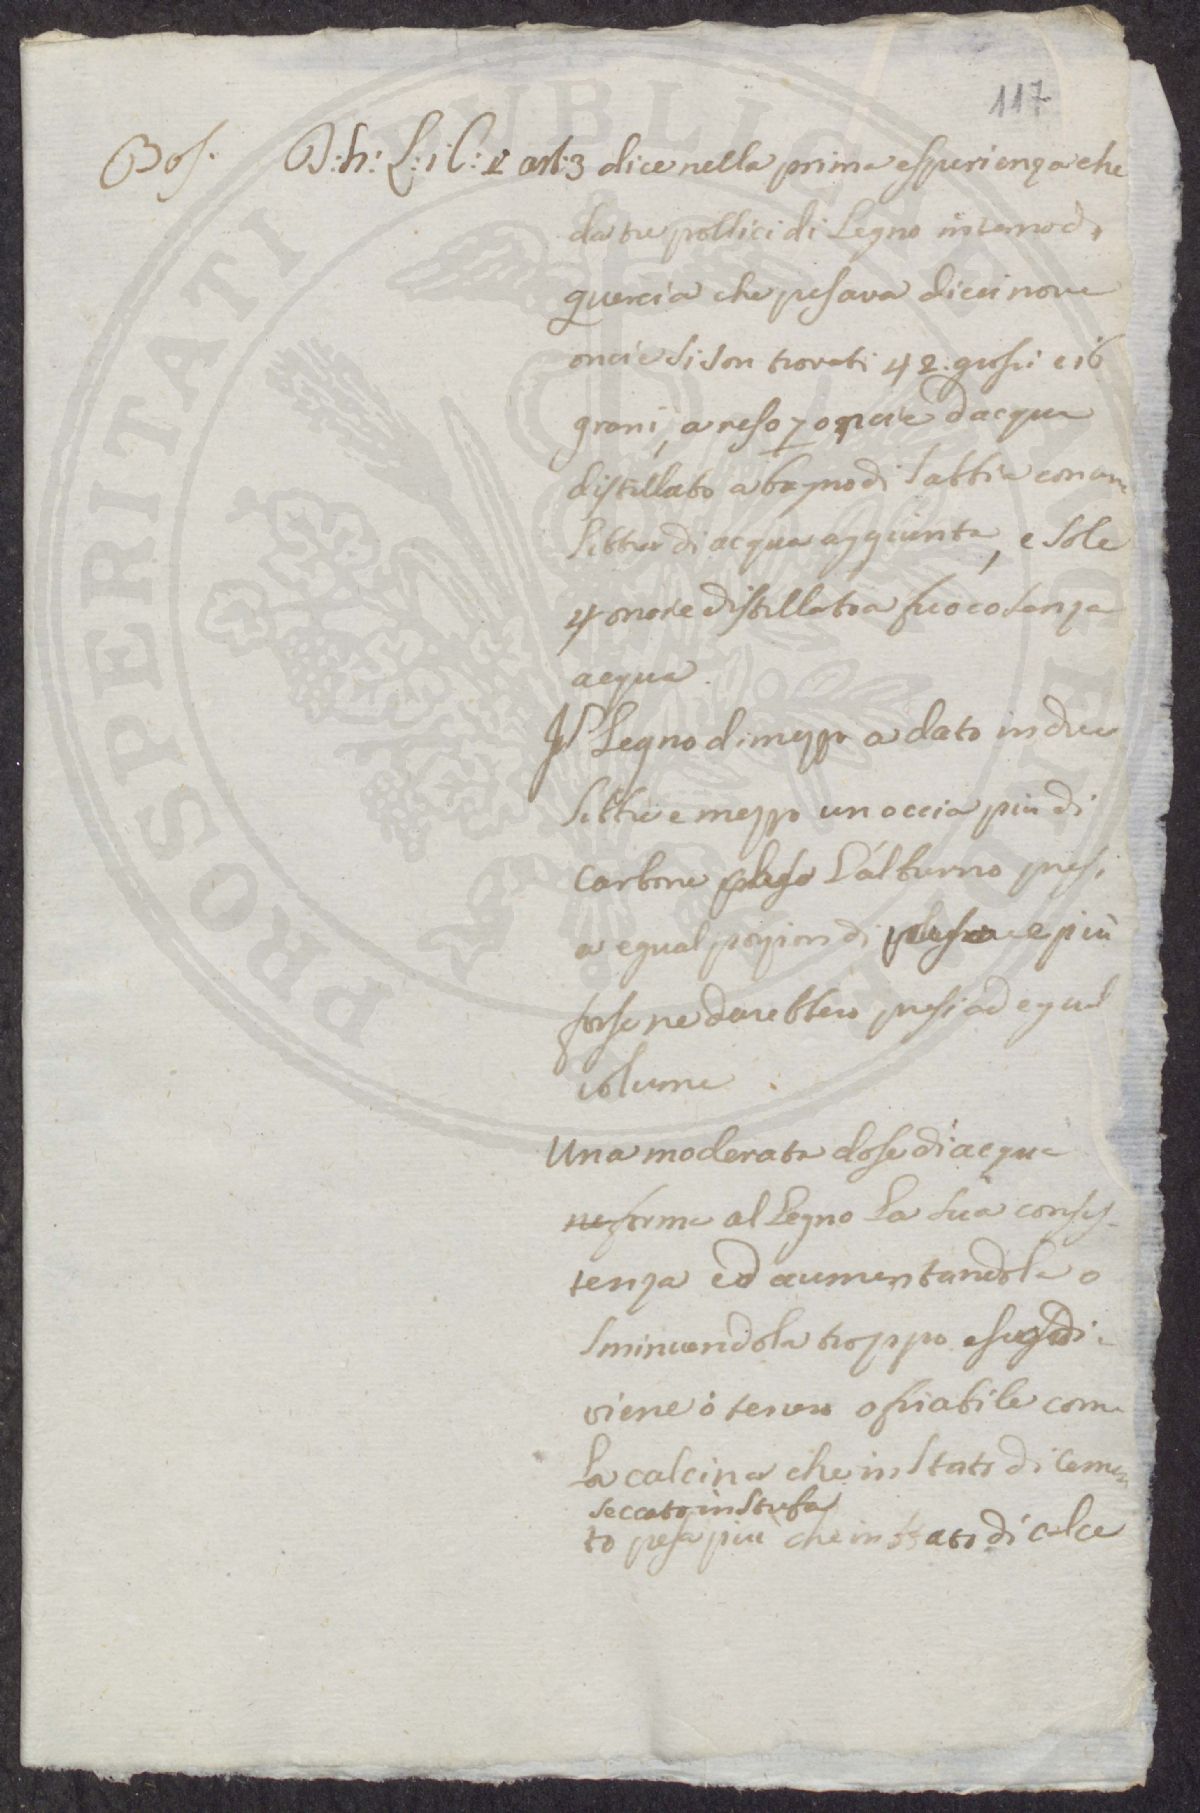 117
Bos. D: h: L: 1 C: 2 art: 3 dice nella prima esperienza che
da tre pollici di Legno interno d,
quercia che pesava diecinove
oncie si son trovati 42. grossi e 16
grani, a reso 7 oncie d'acqua
distillato a bagno di Sabbia con una
Libbra di acqua aggiunta, e Sole
4 oncie distillato a fuoco Senza
acqua.
Il Legno di mezzo a dato in due
Libbre e mezzo un occia più di
carbone L'alburno presi
a egual pozion di e più
forse ne darebbero presi ad egual
volume
Una moderata dose di acqua
ne forma al Legno La Sua consis-
tenza ed aumentandola o
Sminuendola troppo di-
viene ò tenero o friabile come
La calcina che in Stato di cemen
seccato in Stufa
to pesa più che in Stato di calce
PROSPERITATI PUBLICAE AUGENDAE